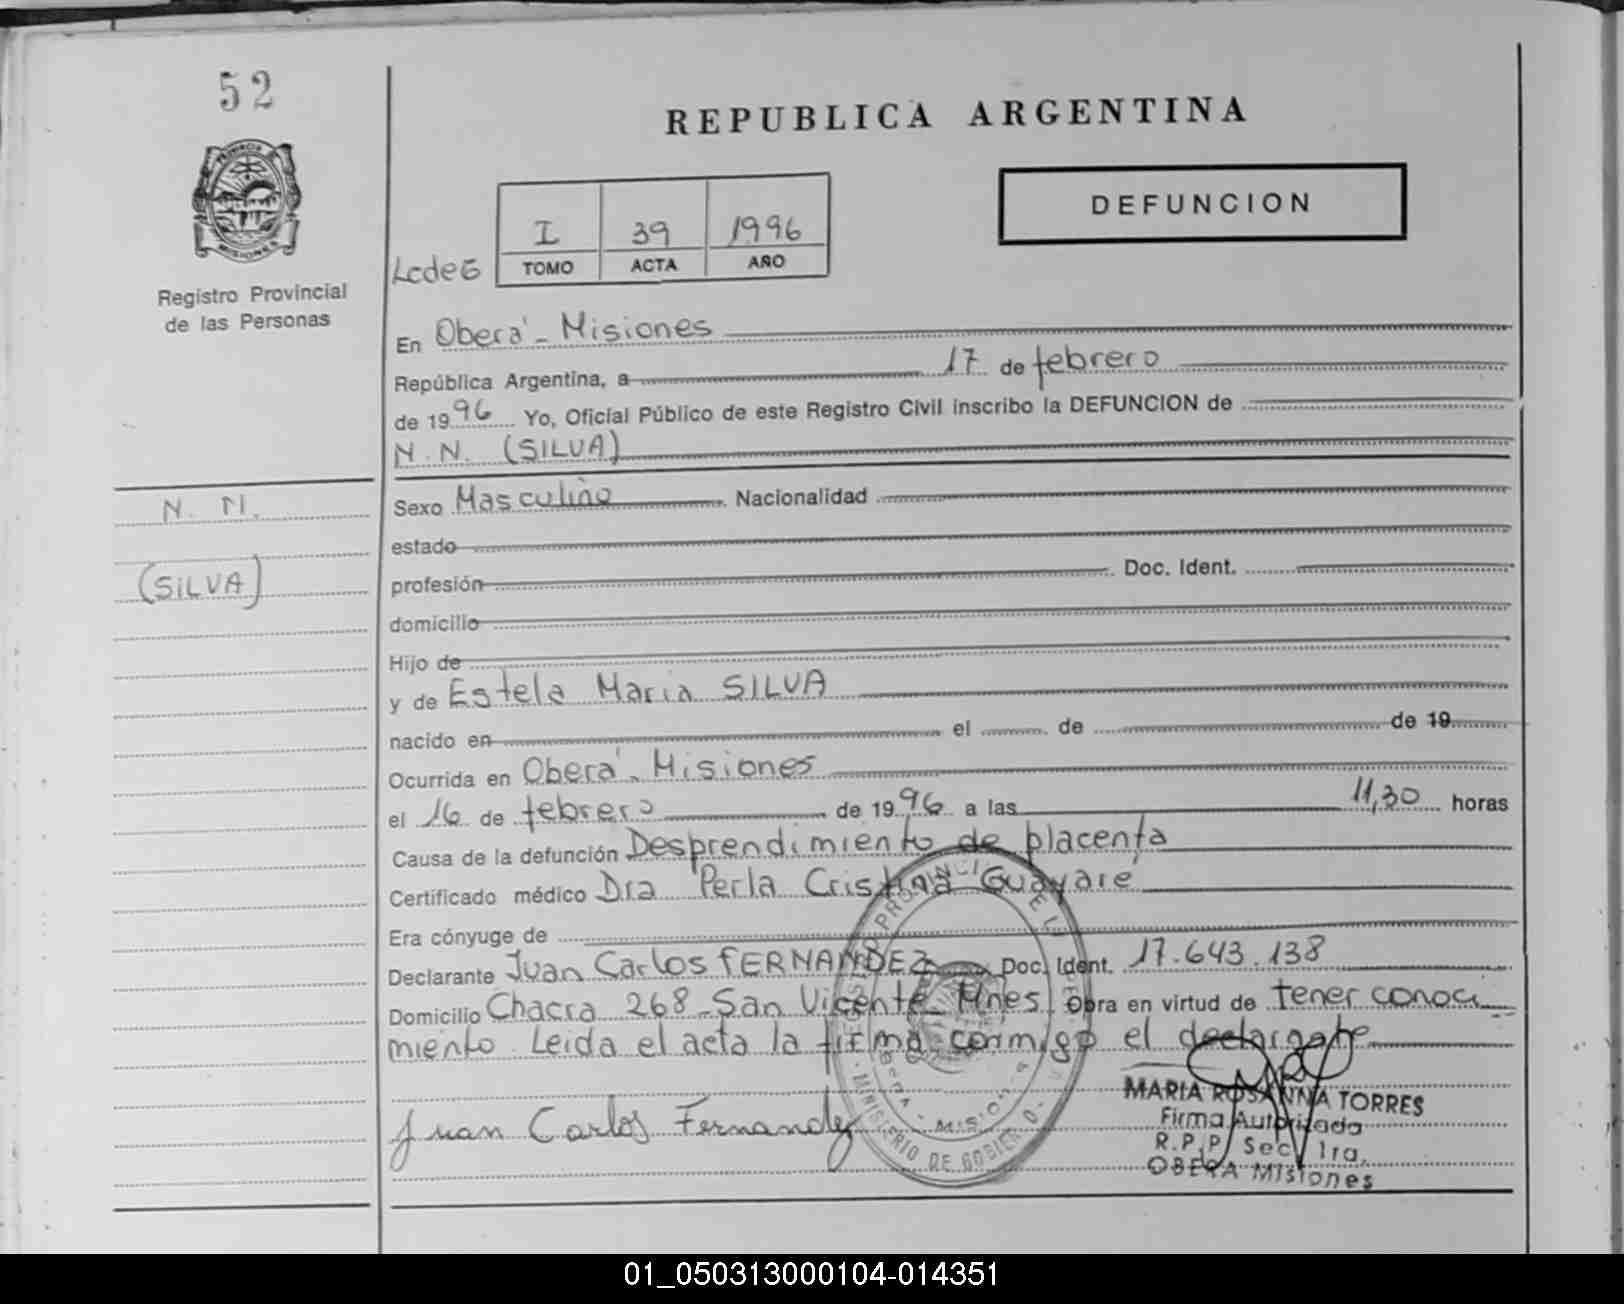 52
REPUBLICA ARGENTINA
PROVINCIA
MISIONES
Registro Provincial
de las Personas
I 39 1996
TOMO ACTA AÑO
DEFUNCION
En Oberá - Misiones
República Argentina, a 17 de febrero
de 1996 Yo, Oficial Público de este Registro Civil inscribo la DEFUNCION de
N. N. (SILVA)
N. N.
(SILVA)
Sexo Masculino Nacionalidad
estado
profesión Doc. Ident.
domicilio
Hijo de
y de Estela Maria SILVA
nacido en el de de 19
Ocurrida en Oberá - Misiones
el 16 de febrero de 1996 a las 11,30 horas
Causa de la defunción Desprendimiento de placenta
Certificado médico Dra Perla Cristina Guayaré
Era cónyuge de
Declarante Juan Carlos FERNANDEZ Doc. Ident. 17.643.138
Domicilio Chacra 268 - San Vicente Mnes. Obra en virtud de tener conoci
miento. Leida el acta la firma conmigo el declarante
Juan Carlos Fernandez
MINISTERIO DE GOBIERNO
MARIA ROSANNA TORRES
Firma Autorizada
R.P.P. Sec. 1ra.
OBERA Misiones
01_050313000104-014351